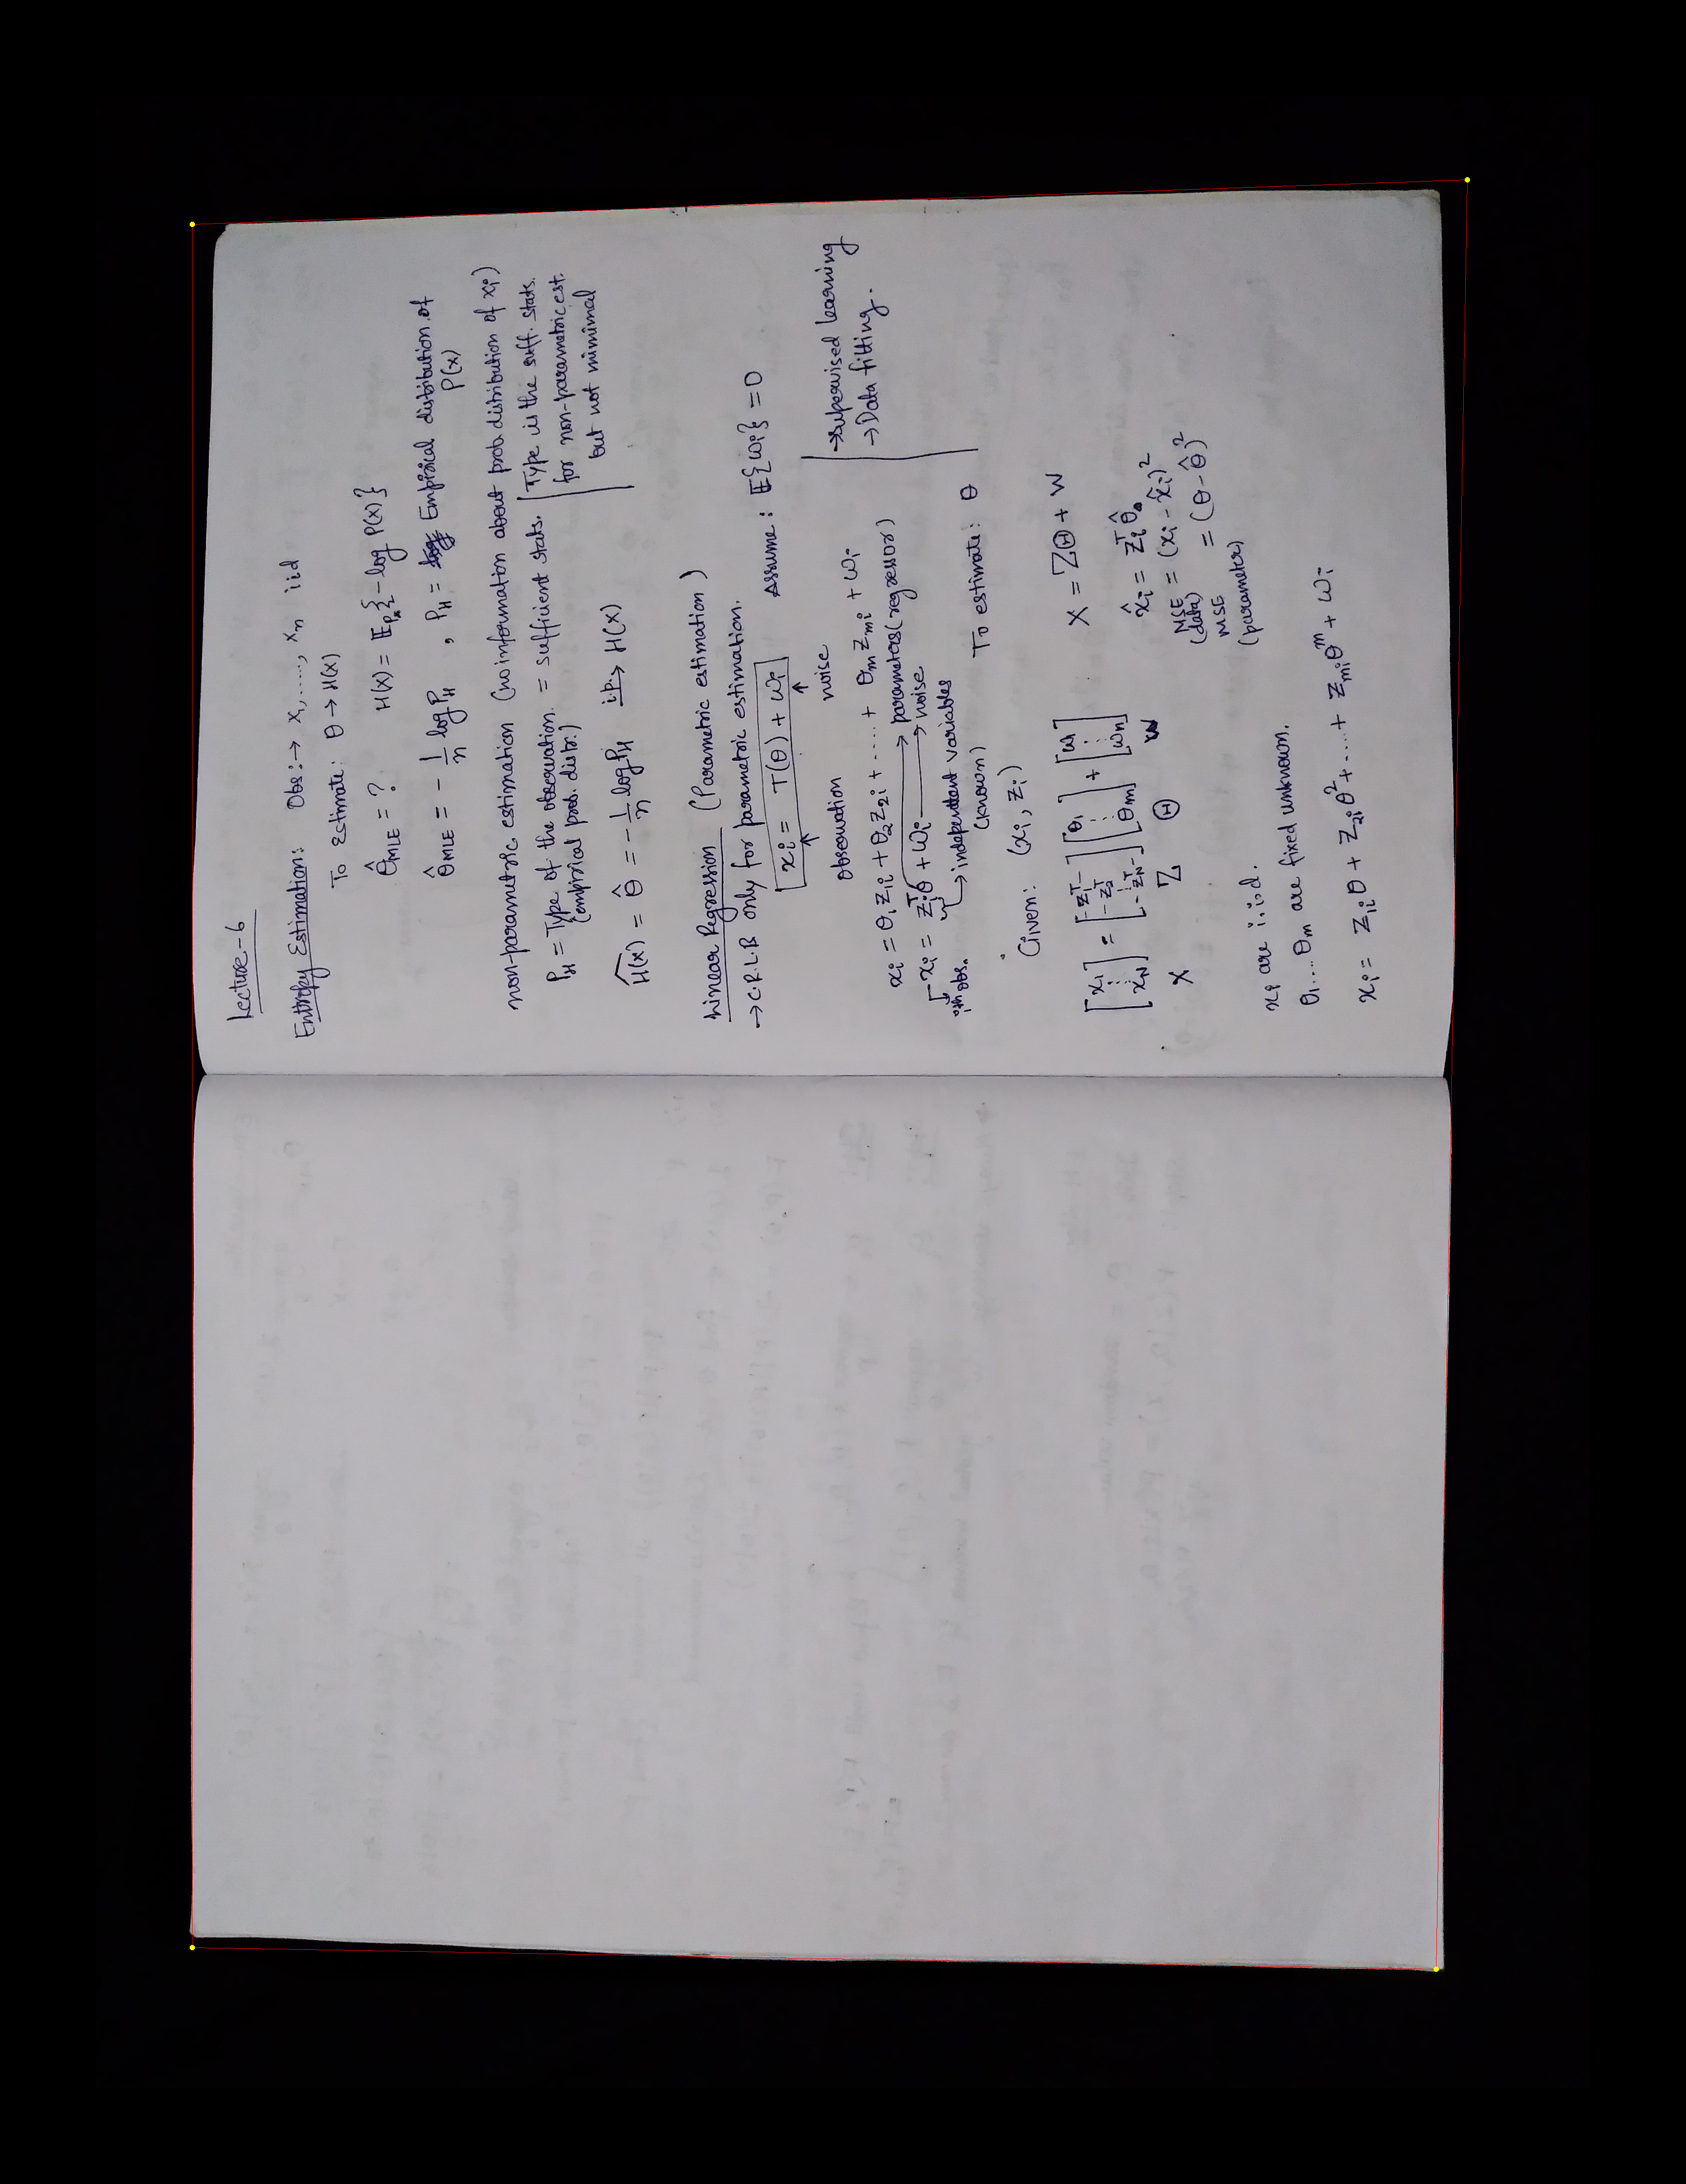 Lecture-6
Entropy Estimation: Obs:→ x₁, ....., xₙ iid
To Estimate: θ → H(x)
θ̂_MLE = ? H(x) = 𝔼_Pₓ{-log P(x)}
θ̂_MLE = -1/n log P_H , P_H = Empirical distribution of P(x)
non-parametric estimation (no information about prob distribution of xᵢ)
P_H = Type of the observation = sufficient stats.
(empirical prob. distr.)
Type is the suff. stats.
for non-parametric est.
but not minimal
Ĥ(x) = θ̂ = -1/n log P_H i.p.→ H(x)
Linear Regression (Parametric estimation)
→ C.R.L.B only for parametric estimation.
xᵢ = T(θ) + ωᵢ Assume: 𝔼{ωᵢ} = 0
observation noise
→ supervised learning
→ Data fitting.
xᵢ = θ₁z₁ᵢ + θ₂z₂ᵢ + ..... + θₘzₘᵢ + ωᵢ
xᵢ = zᵢᵀθ + ωᵢ → parameters (regressor)
→ noise
ith obs. → independent variables
(known)
To estimate: θ
Given: (xᵢ, zᵢ)
[x₁ ⋮ x_N] = [-z₁ᵀ- -z₂ᵀ- ⋮ -z_Nᵀ-] [θ₁ ⋮ θₘ] + [ω₁ ⋮ ωₙ]
X Z Θ W
X = ZΘ + W
x̂ᵢ = zᵢᵀ θ̂
MSE = (xᵢ - x̂ᵢ)²
(data)
MSE = (θ - θ̂)²
(parameter)
xᵢ are i.i.d.
θ₁....θₘ are fixed unknown.
xᵢ = z₁ᵢθ + z₂ᵢθ² + ..... + zₘᵢθᵐ + ωᵢ